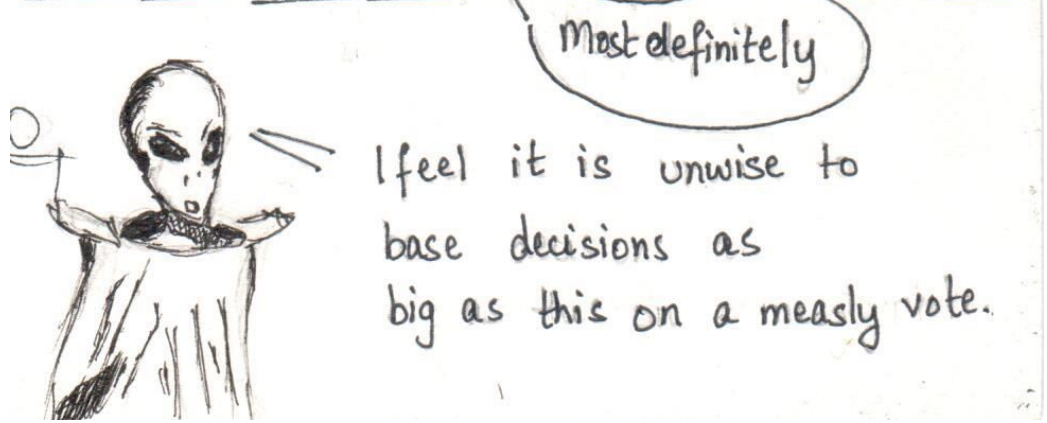 Most definitely
I feel it is unwise to
base decisions as
big as this on a measly vote.